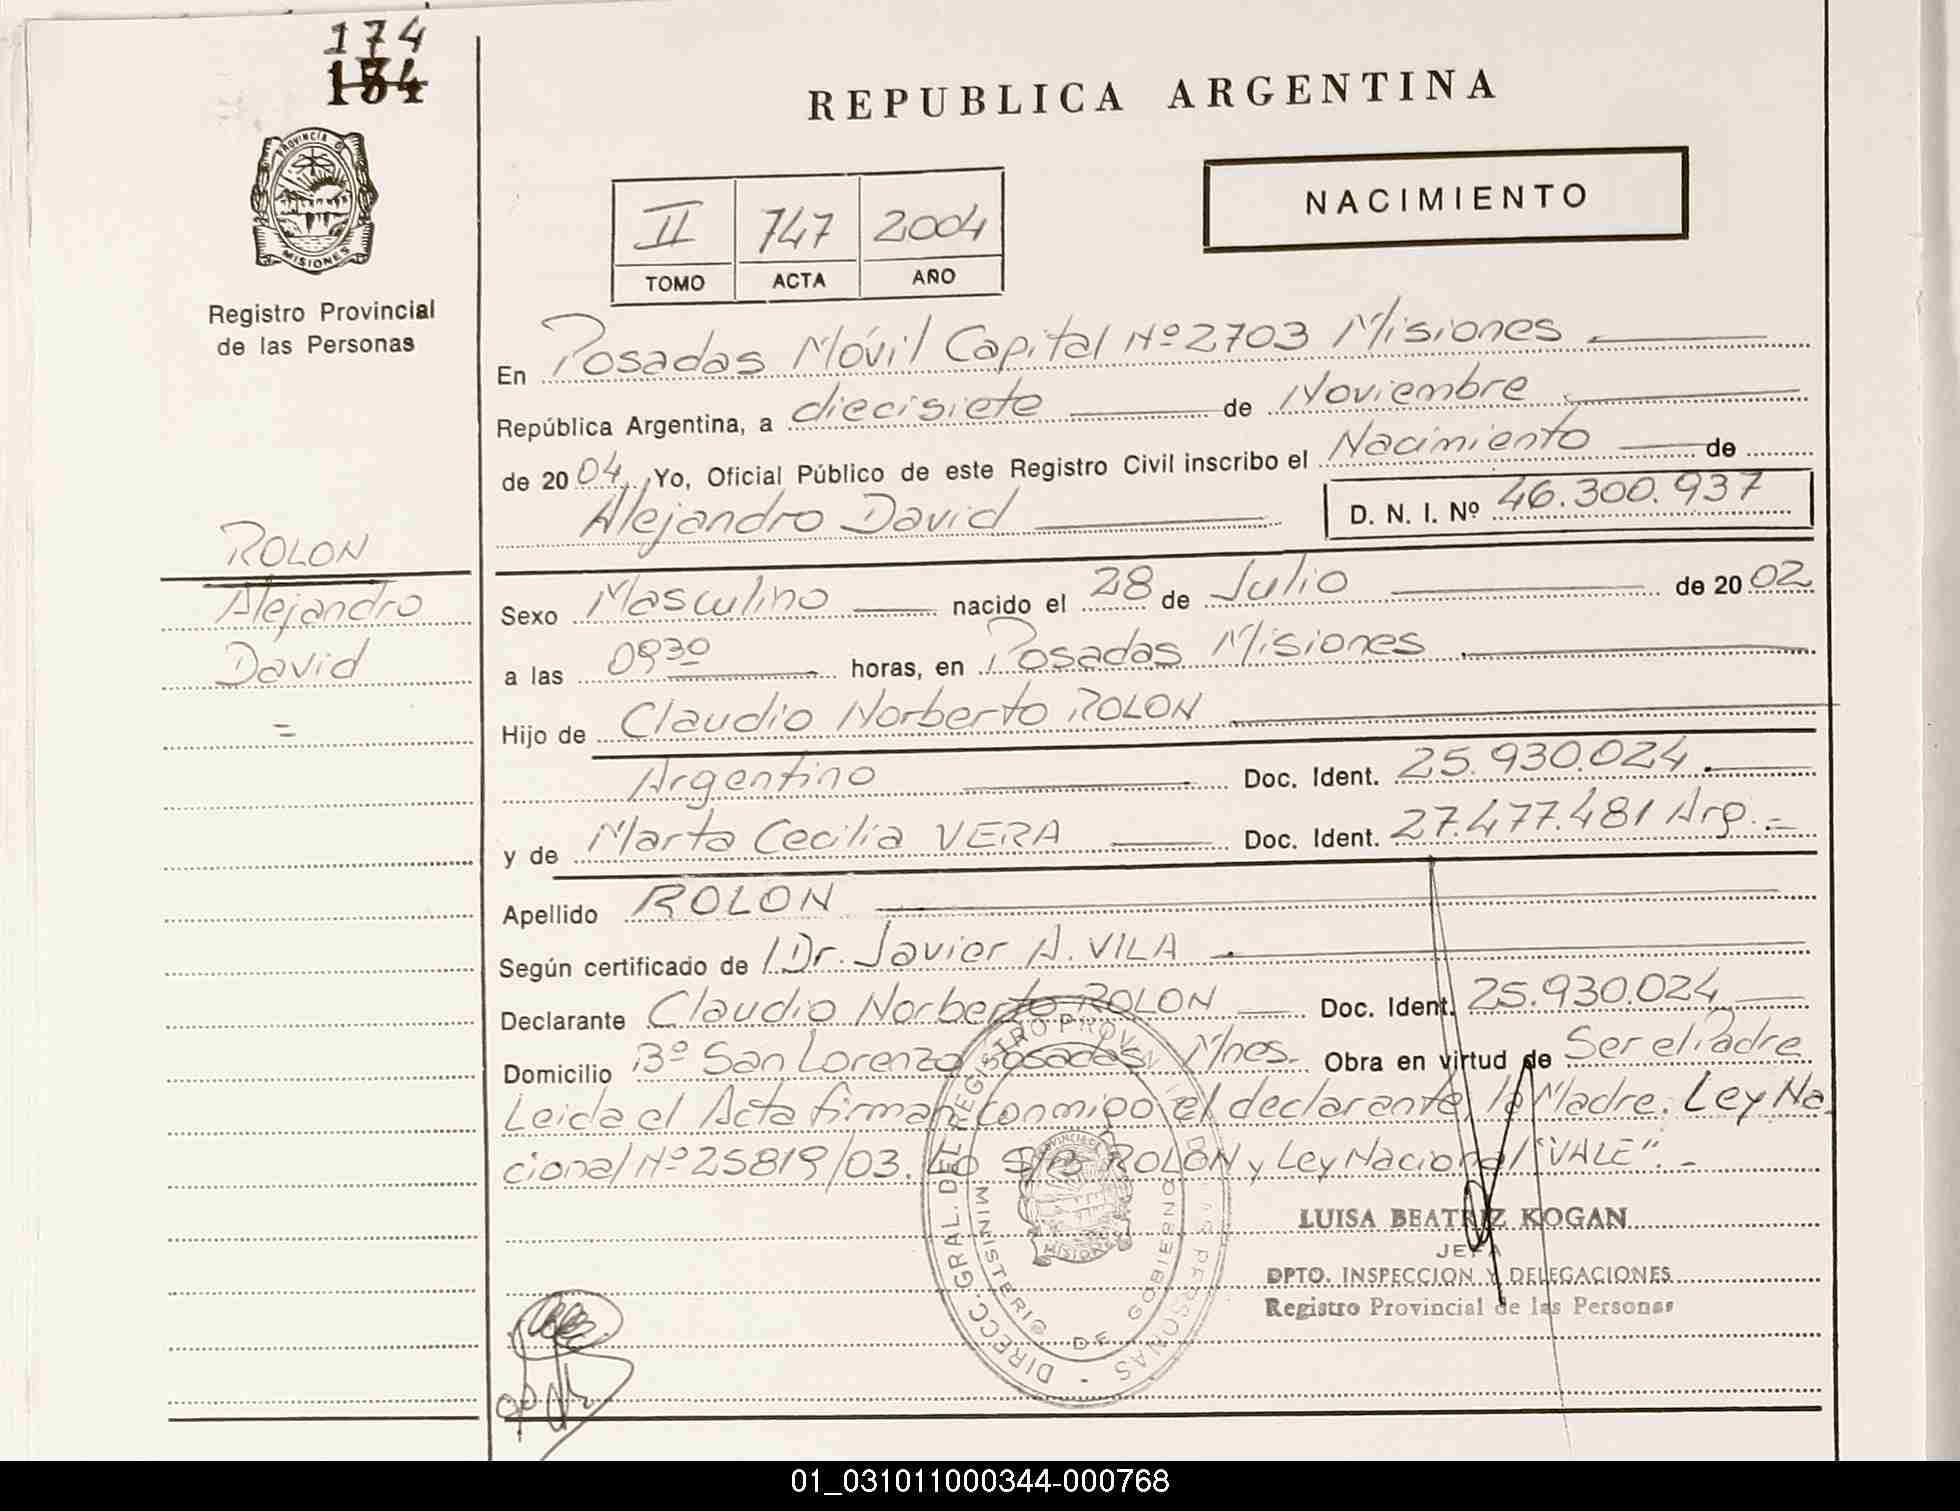 174
134
REPUBLICA ARGENTINA
PROVINCIA DE
MISIONES
Registro Provincial
de las Personas
II 747 2004
TOMO ACTA AÑO
NACIMIENTO
En Posadas Móvil Capital Nº 2703 Misiones
República Argentina, a diecisiete de Noviembre
de 2004, Yo, Oficial Público de este Registro Civil inscribo el Nacimiento de
Alejandro David D. N. I. Nº 46.300.937
ROLON
Alejandro
David
=
Sexo Masculino nacido el 28 de Julio de 2002
a las 0930 horas, en Posadas Misiones
Hijo de Claudio Norberto ROLON
Argentino Doc. Ident. 25.930.024
y de Marta Cecilia VERA Doc. Ident. 27.477.481 Arg.=
Apellido ROLON
Según certificado de Dr. Javier A. VILA
Declarante Claudio Norberto ROLON Doc. Ident. 25.930.024
Domicilio Bº San Lorenzo Posadas Mnes. Obra en virtud de Ser el Padre
Leida el Acta firman conmigo el declarante, la Madre. Ley Na
cional Nº 25819/03. S/B ROLON y Ley Nacional "VALE".-
DIRECC. GRAL. DEL REGISTRO PROVINCIAL DE LAS PERSONAS
MINISTERIO DE GOBIERNO
PROVINCIA DE
MISIONES
LUISA BEATRIZ KOGAN
JEFA
DPTO. INSPECCION Y DELEGACIONES
Registro Provincial de las Personas
01_031011000344-000768